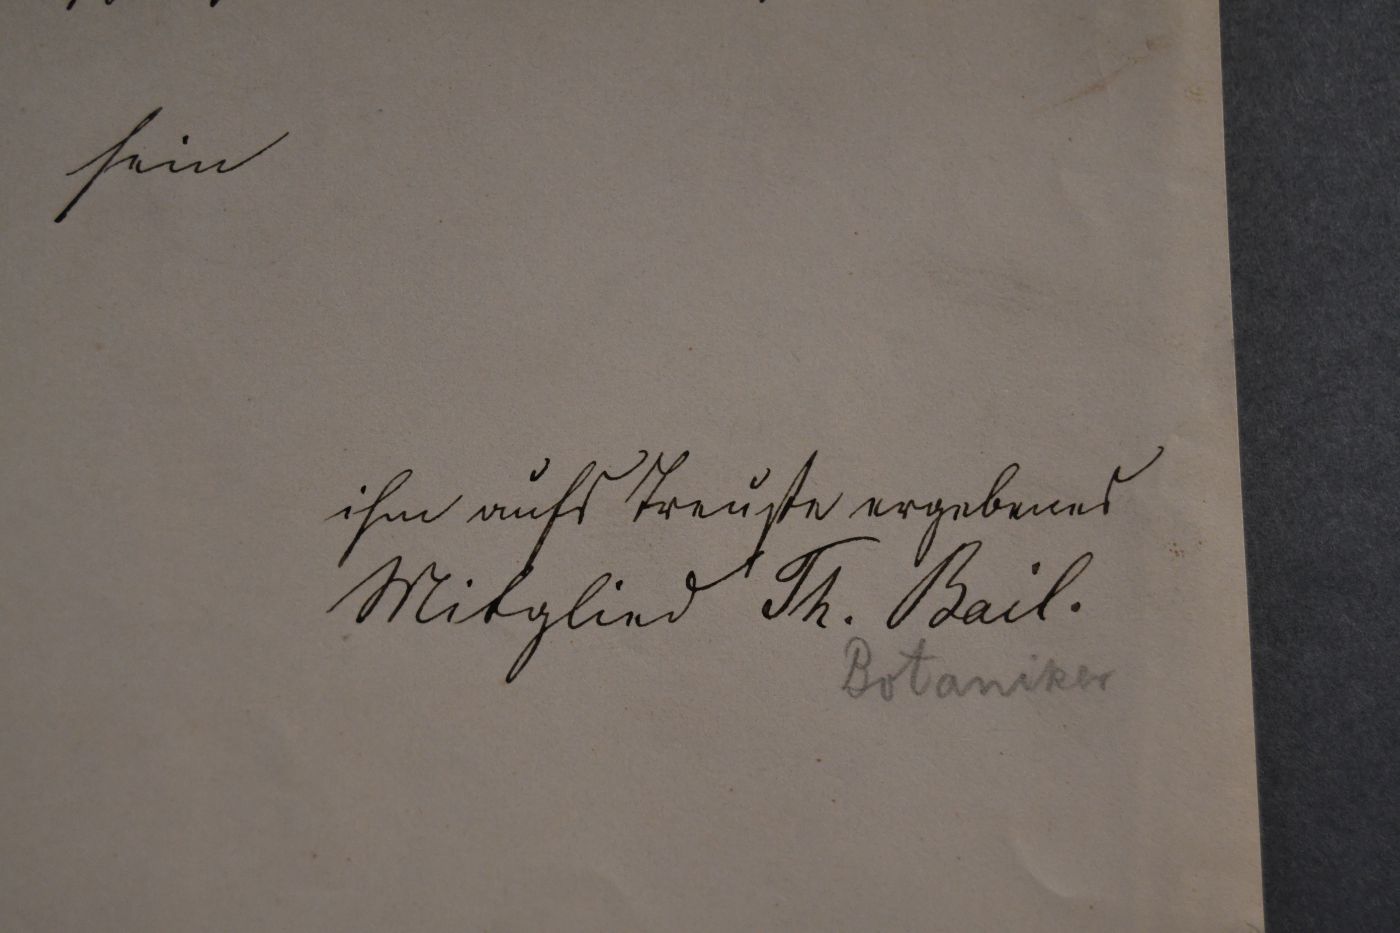 sein
ihm aufs Treuste ergebenes
Mitglied Th. Bail.
Botaniker